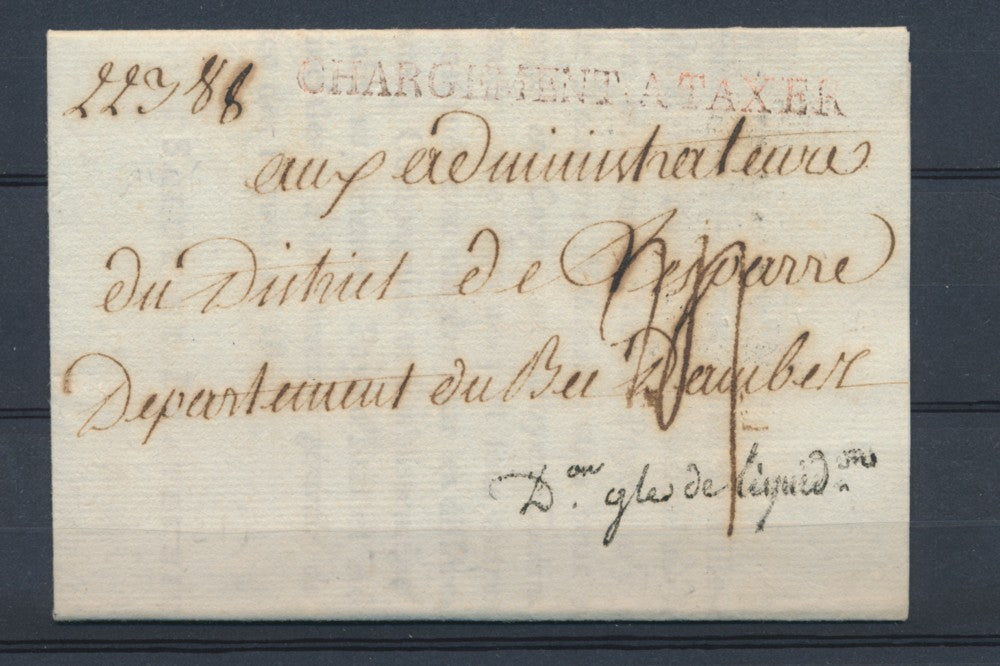 22388
CHARGEMENT A TAXER
aux administrateurs
du District de Lesparre
Departement du Bec Dambez
Don. gle de liquidon